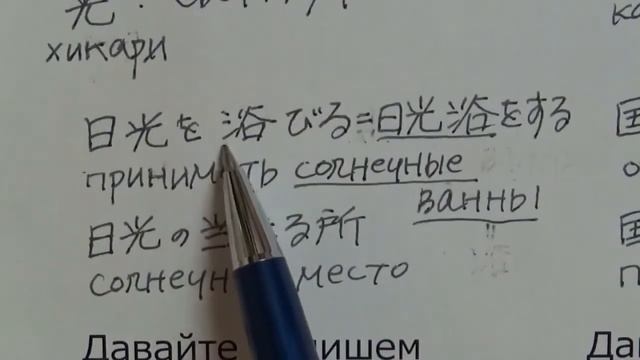 光:
хикари
日光を浴びる=日光浴をする
принимать солнечные
ванны
日光の当たる所
солнечн место
Давайте пишем
ка
国
о
国
п
Да